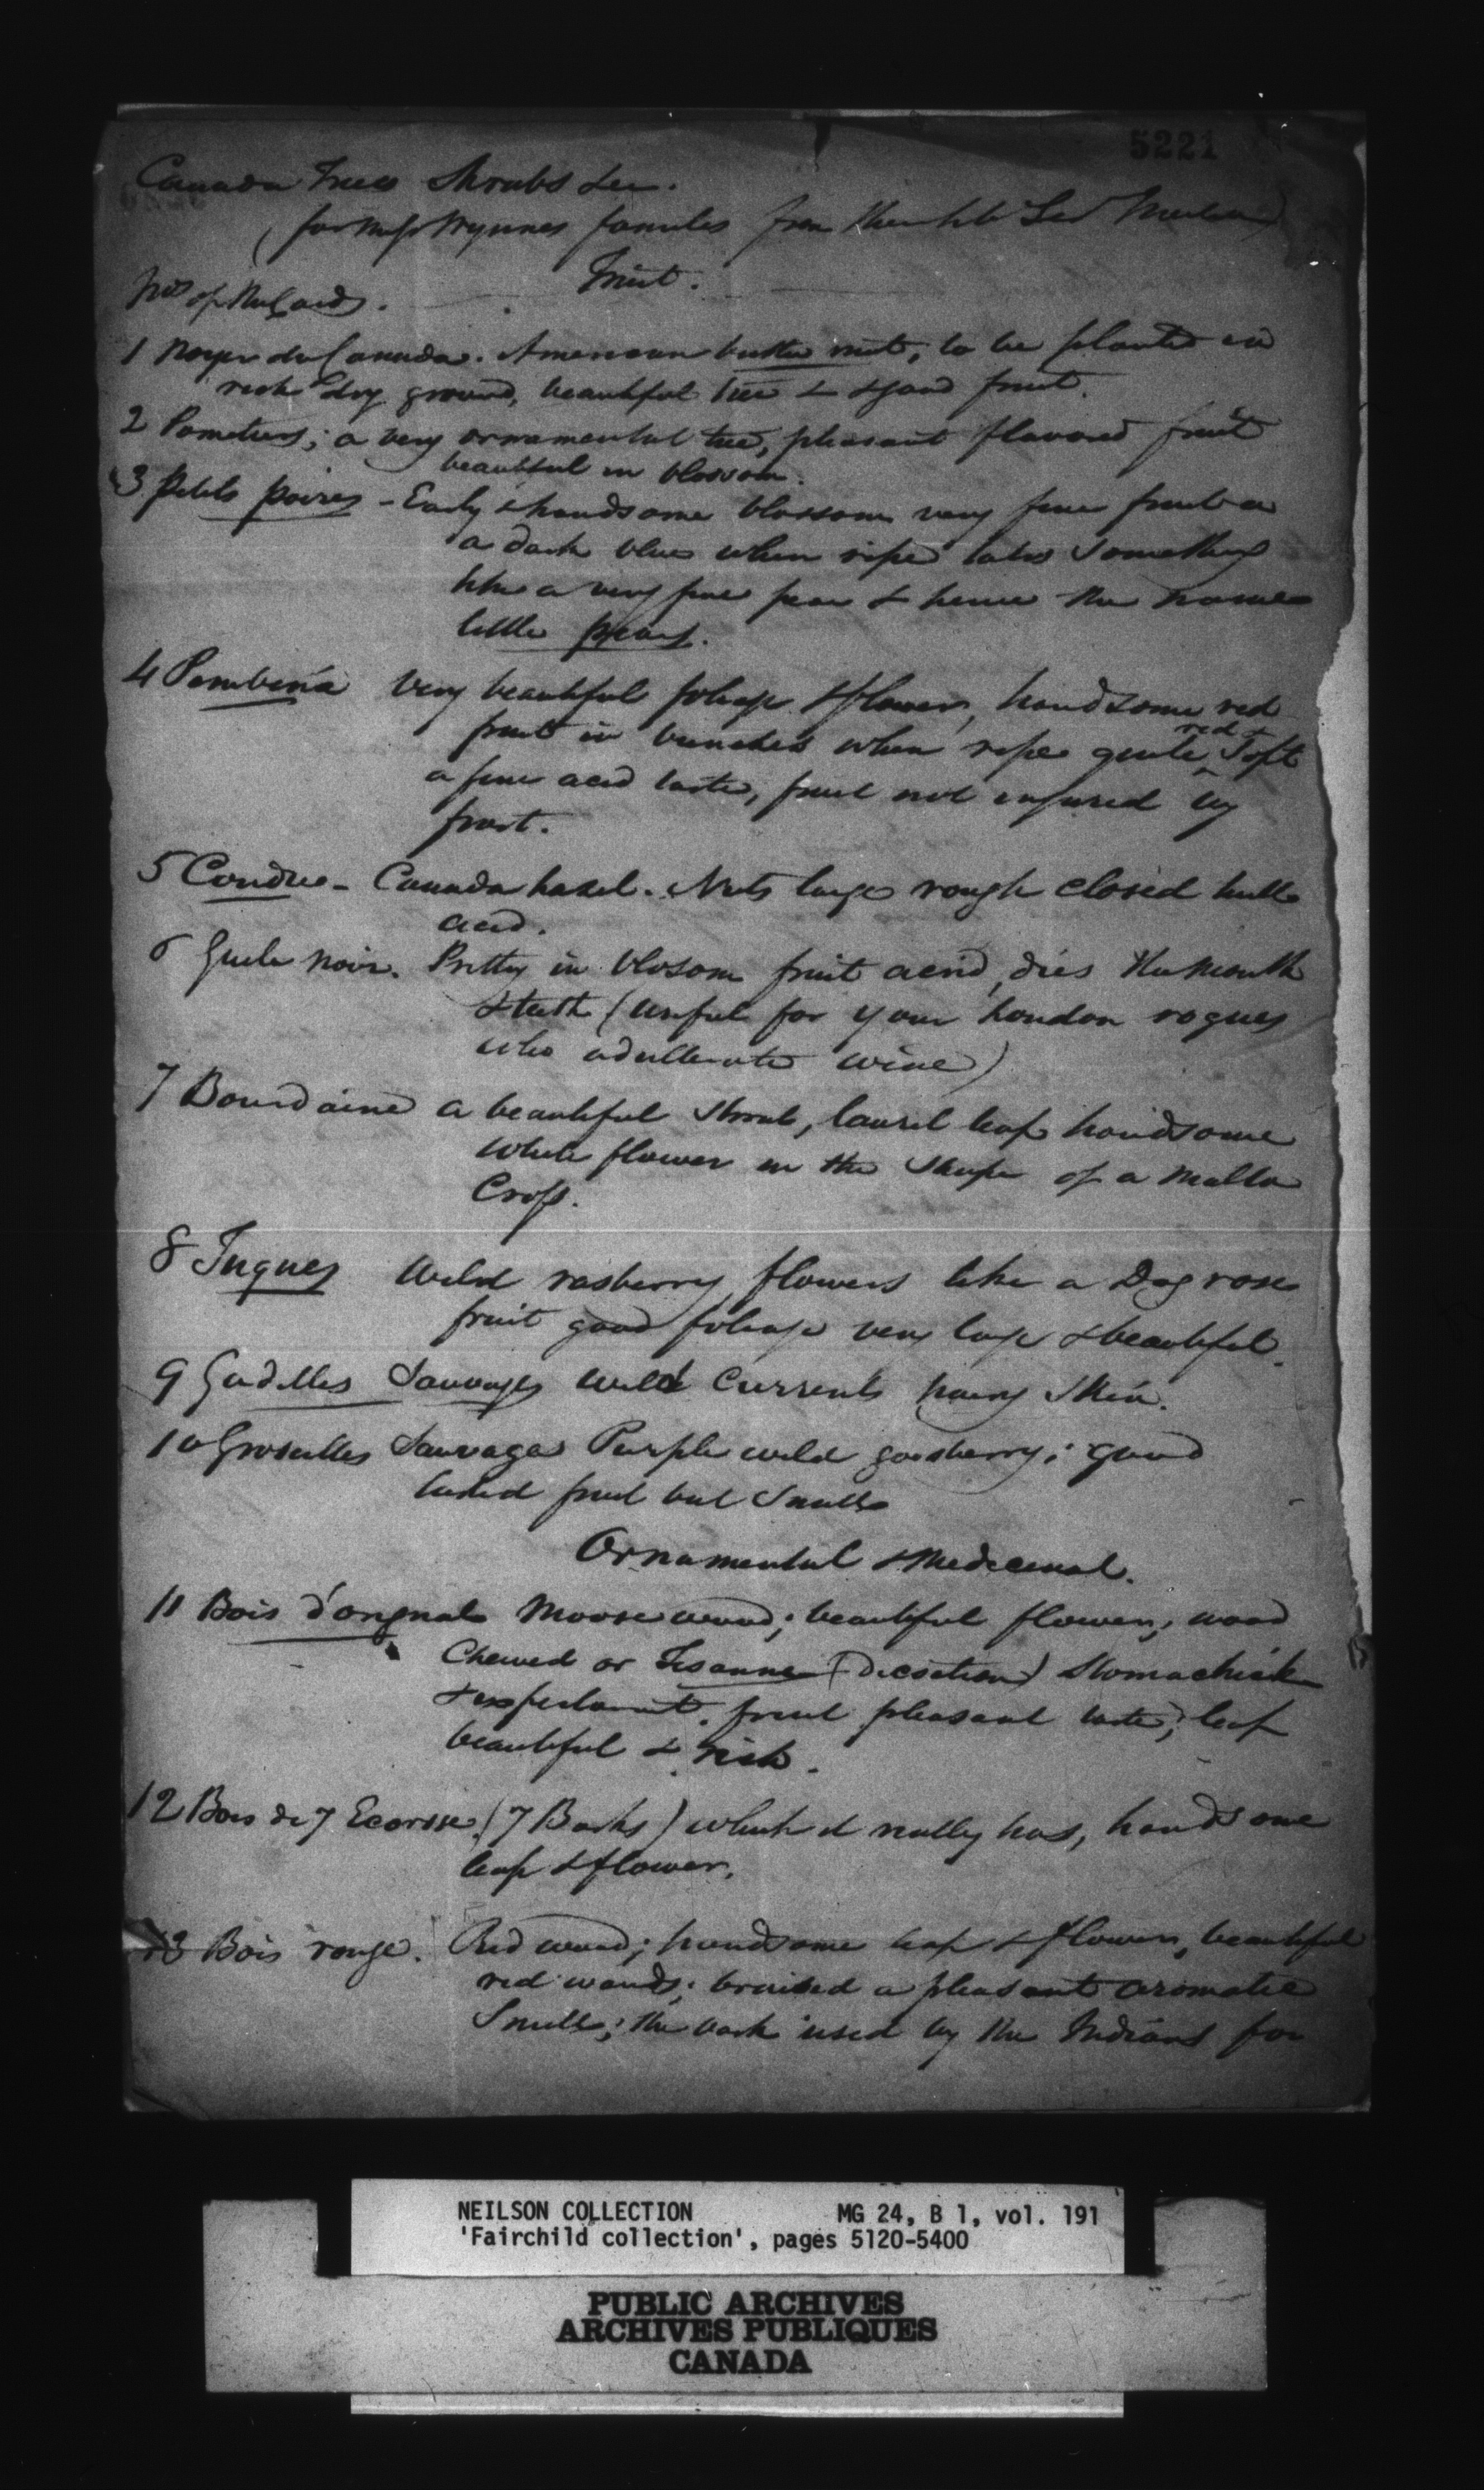 5221
Canada Trees Shrubs &c.
(for Wynnes families from their
Fruit.
Nos of
1 Noyer du Canada. American butter nut, to be planted in
rich dry ground, beautiful tree & good fruit.
2 Pometiers; a very ornamental tree, pleasant flavored fruit
beautiful in blossom.
3 Petits poires - Early & handsome blossom very fine fruit
a dark blue when ripe tates something
like a very fine pear & hence the name
little pears.
4 Pembina Very beautiful foliage & flower, handsome red
fruit in bunches when ripe quite red & Soft
a fine acid taste, fruit not injured by
frost.
5 Coudre - Canada hazel. Nuts large rough closed hull
acid.
6 Guele noir. Pretty in blosom fruit acrid, dies the mouth
& teeth (useful for your London rogues
who adulterate wine)
7 Bourdaine a beautiful shrub, laurel leaf handsome
white flower in the shape of a Malta
Cross.
8 Tuques Wild rasberry flowers like a Dog rose
fruit good foliage very large & beautiful.
9 Gadelles Sauvages wild Currents hairy skin.
10 Groseilles Sauvages Purple wild goosberry; good
tasted fruit but small
Ornamental & Medecinal.
11 Bois d'orignal Moose wood; beautiful flower, wood
Chewed or Tisanne (Decoction) Stomachick
& expectorant. fruit pleasant taste; leaf
beautiful & rich.
12 Bois de 7 Ecorse (7 Barks) which it really has, handsome
leaf & flower.
13 Bois rouge. Red wood; handsome leaf & flower, beautiful
red wands; bruised a pleasant aromatic
Smell; the bark used by the Indians for
NEILSON COLLECTION MG 24, B 1, vol. 191
'Fairchild collection', pages 5120-5400
PUBLIC ARCHIVES
ARCHIVES PUBLIQUES
CANADA